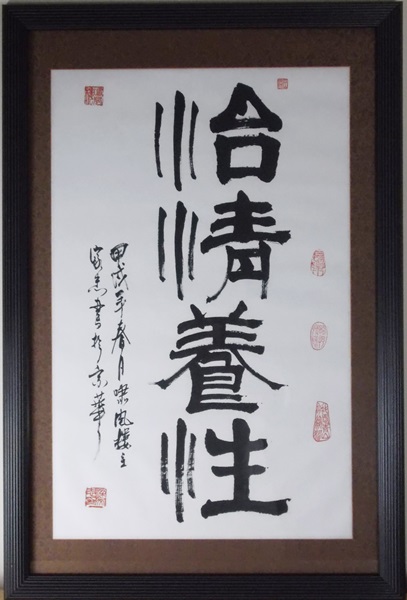 怡情養性
甲戌年春月嘯風樓主
家恚書於京華